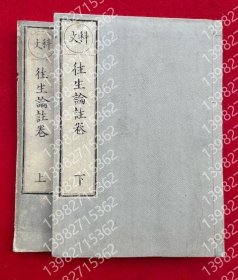 科文
往生論註卷
下
科文
往生論註卷
上
13982715362